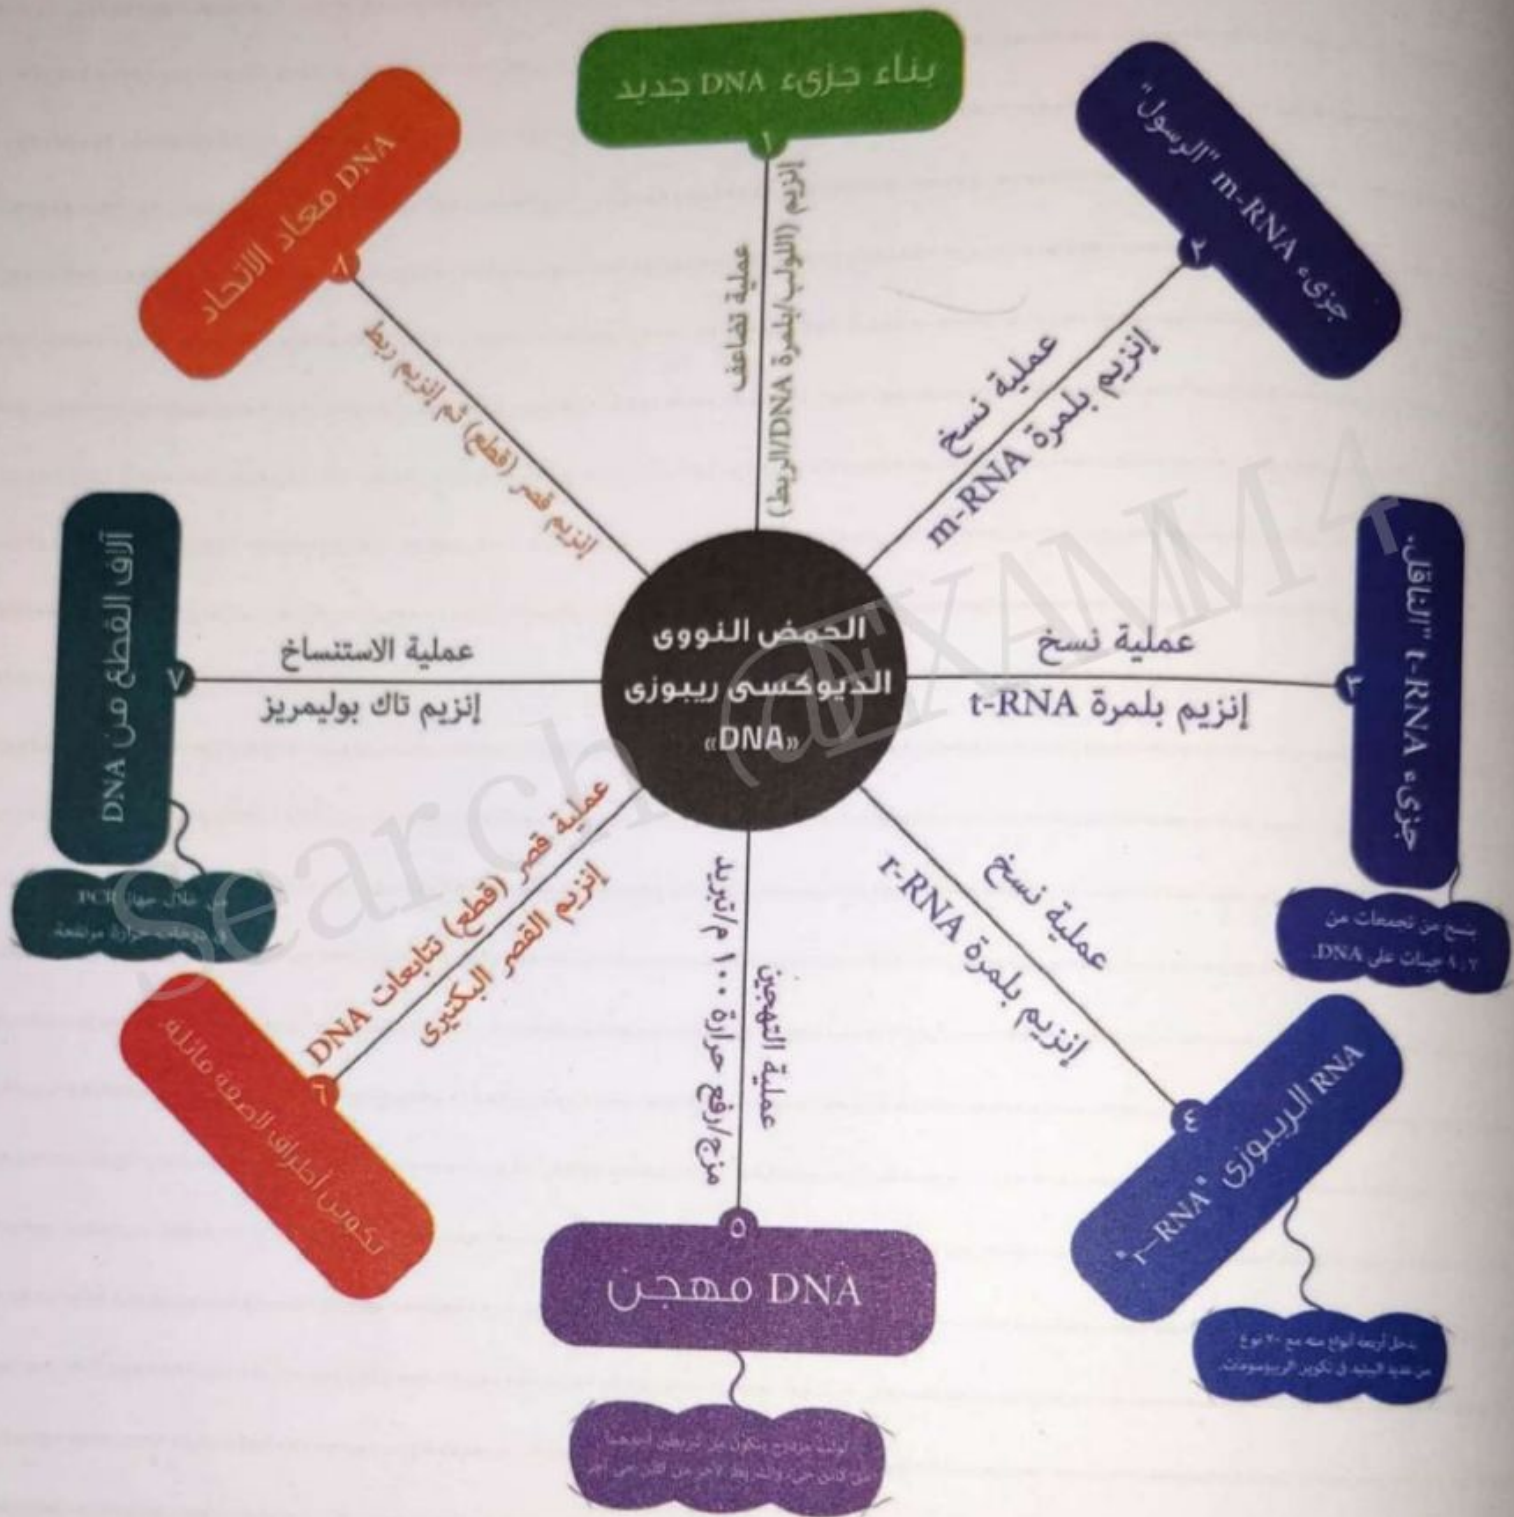 الحمض النووى
الديوكسى ريبوزى
«DNA»
بناء جزىء DNA جديد
١
عملية تضاعف
إنزيم (اللولب/بلمرة DNA/الربط)
جزىء m-RNA "الرسول"
٢
عملية نسخ
إنزيم بلمرة m-RNA
جزىء t-RNA "الناقل".
٣
عملية نسخ
إنزيم بلمرة t-RNA
ينسخ من تجمعات من
٨:٧ جينات على DNA.
RNA الريبوزى "r-RNA"
٤
عملية نسخ
إنزيم بلمرة r-RNA
يدخل أربعة أنواع منه مع ٧٠ نوع
من عديد الببتيد فى تكوين الريبوسومات.
DNA مهجن
٥
عملية التهجين
مزج/رفع حرارة ١٠٠ م/تبريد
لولب مزدوج يتكون من شريطين أحدهما
من كائن حى، والشريط الآخر من كائن حى آخر
تكوين أطراف لاصقة مائلة.
٦
عملية قصر (قطع) تتابعات DNA
إنزيم القصر البكتيرى
آلاف القطع من DNA
٧
عملية الاستنساخ
إنزيم تاك بوليمريز
من خلال جهاز PCR
فى درجات حرارة مرتفعة.
DNA معاد الاتحاد
٨
إنزيم قصر (قطع) ثم إنزيم ربط
Search @EXAMM4